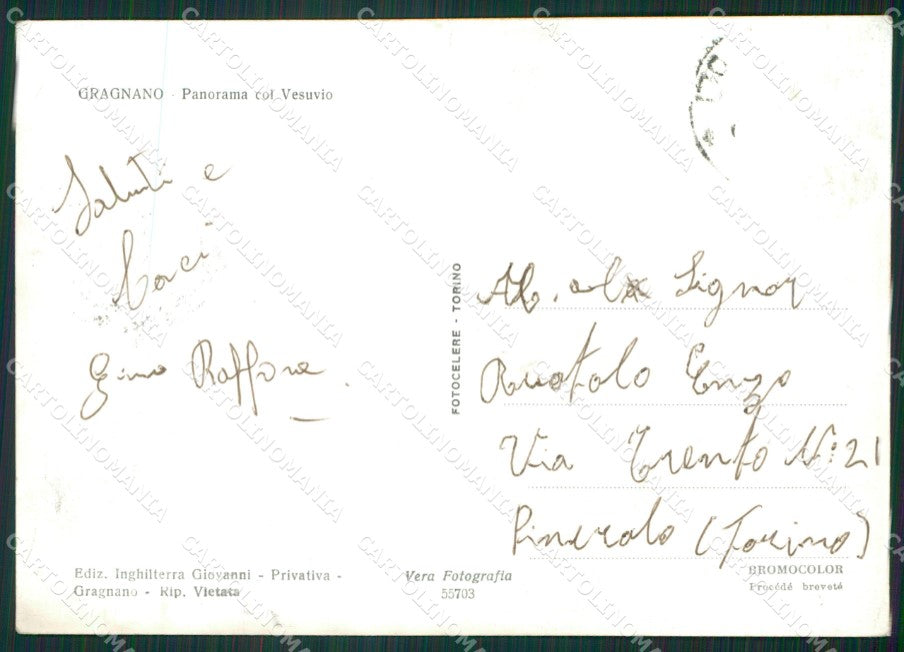 GRAGNANO - Panorama col Vesuvio
Saluti e
baci
Gino Raffone.
FOTOCELERE - TORINO
Signor
Ruotolo Enzo
Via Trento N: 21
Pinerolo (Torino)
Ediz. Inghilterra Giovanni - Privativa -
Gragnano - Rip. Vietata
Vera Fotografia
55703
BROMOCOLOR
Procédé breveté
CARTOLINOMANIA